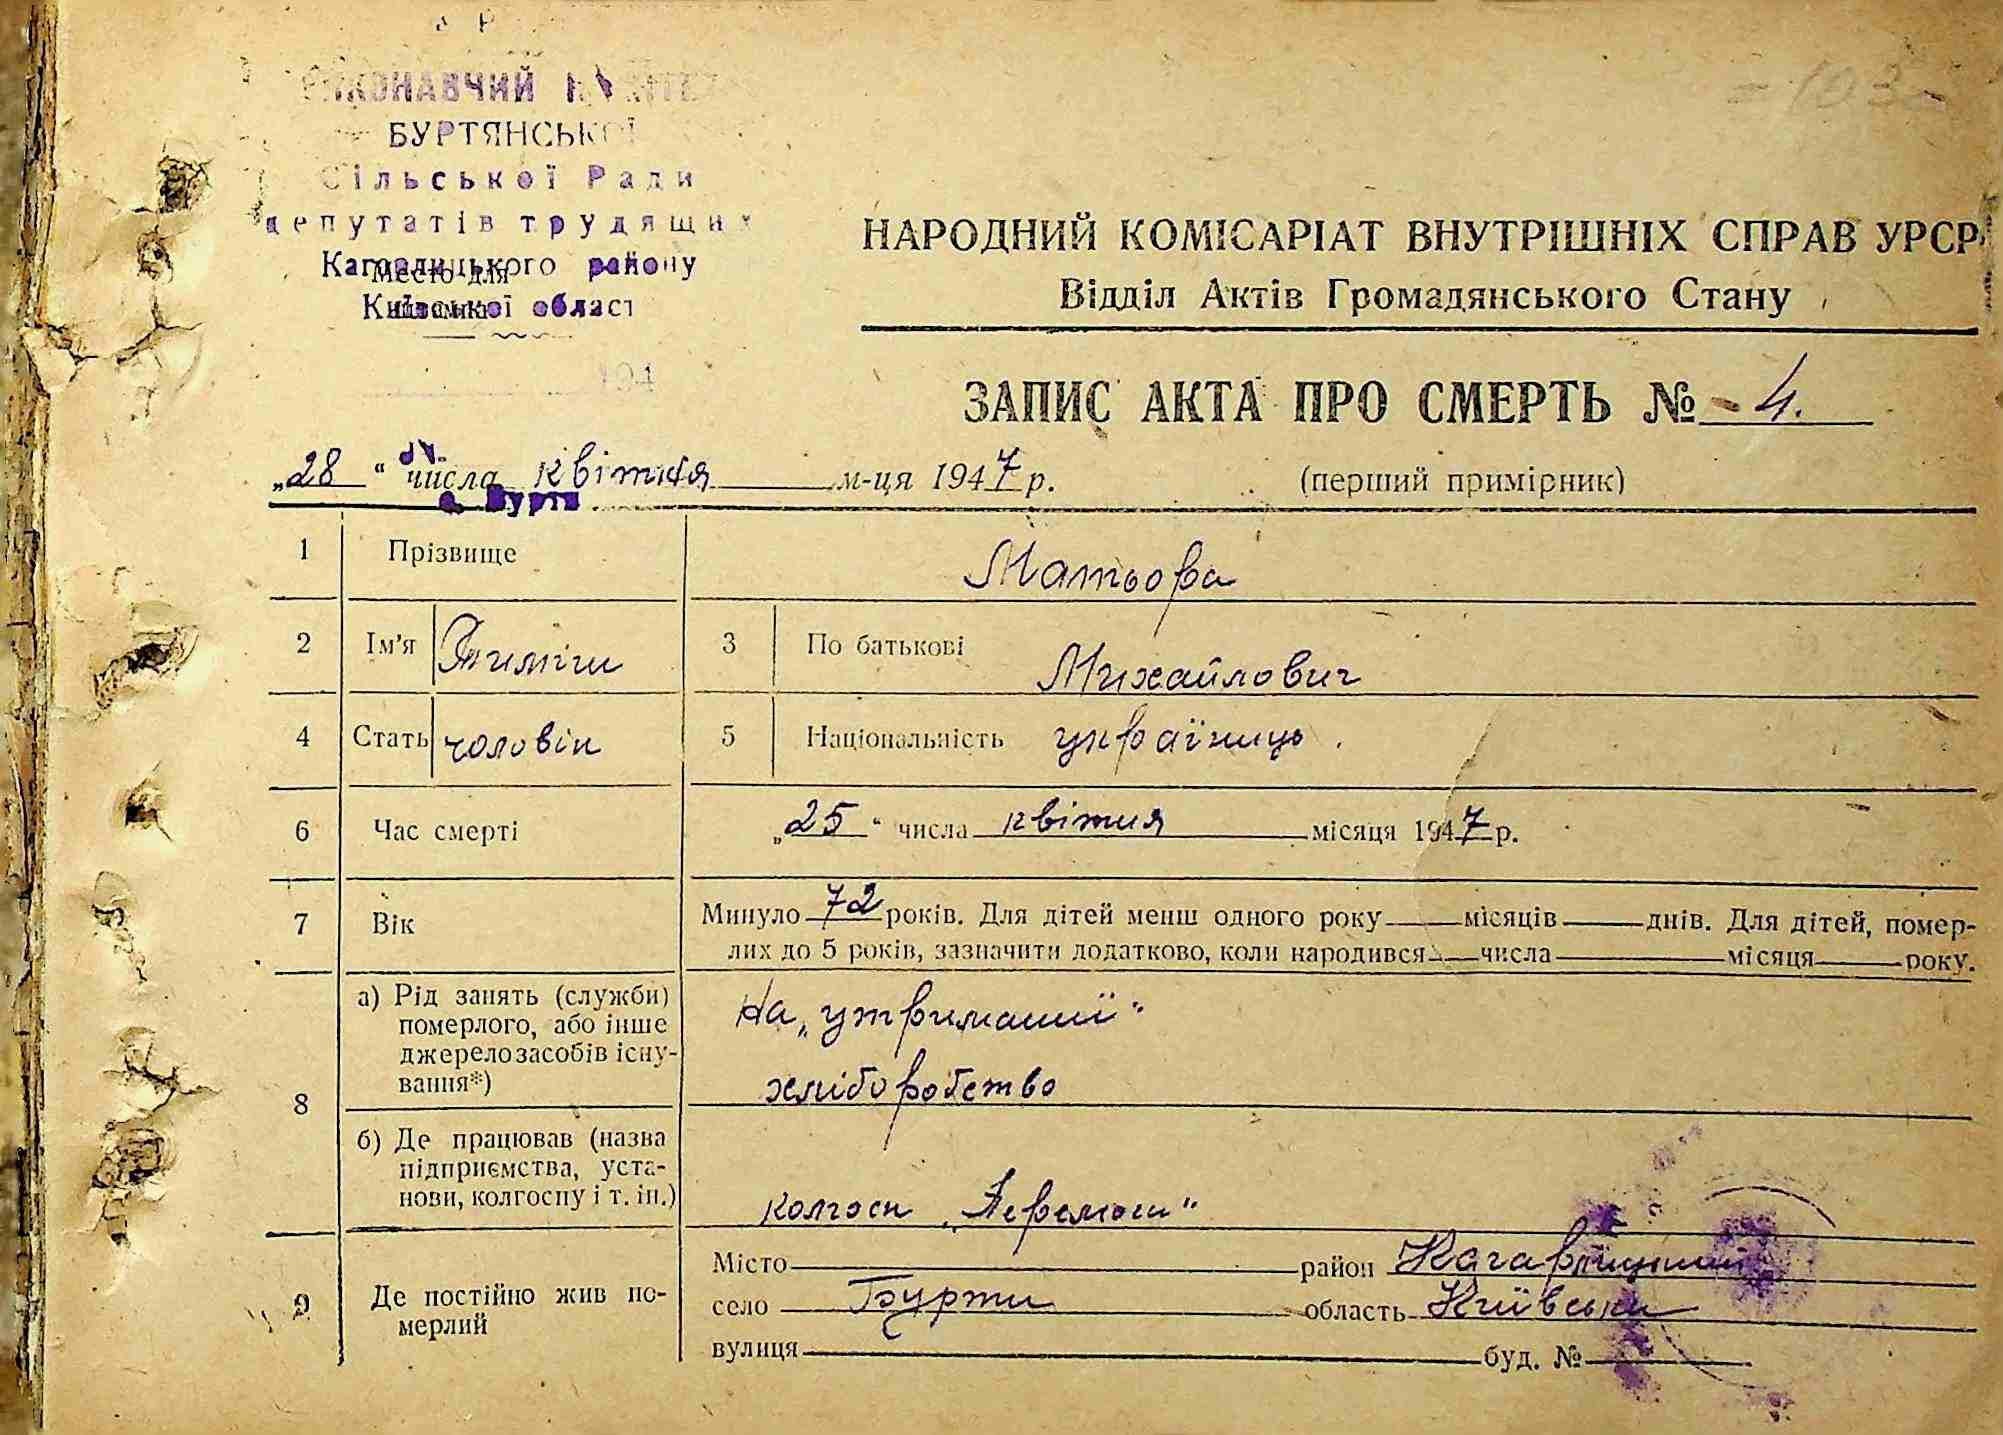 ВИКОНАВЧИЙ
БУРТЯНСЬКОЇ
Сільської Ради
депутатів трудящих
Кагарлицького району
Место для
Київської області
194
103
НАРОДНИЙ КОМІСАРІАТ ВНУТРІШНІХ СПРАВ УРСР
Відділ Актів Громадянського Стану
ЗАПИС АКТА ПРО СМЕРТЬ № 4.
„28“ числа квітня м-ця 1947 р. (перший примірник)
с. Бурти
1 Прізвище Матьора
2 Ім'я Тиміш 3 По батькові Михайлович
4 Стать чоловік 5 Національність українець.
6 Час смерті „25“ числа квітня місяця 1947 р.
7 Вік Минуло 72 років. Для дітей менш одного року місяців днів. Для дітей, помер-
лих до 5 років, зазначити додатково, коли народився числа місяця року.
8 а) Рід занять (служби) померлого, або інше джерело засобів існу-
вання*) На „утриманні“
хліборобство
б) Де працював (назва
підприємства, уста-
нови, колгоспу і т. ін.) колгосп „Перемога“
9 Де постійно жив по-
мерлий
Місто район Кагарлицький
село Бурти область Київська
вулиця буд. №